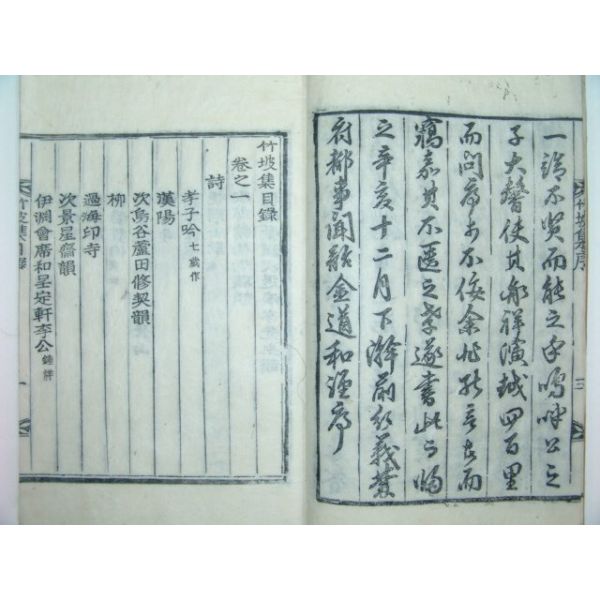 竹坡集序 三
一端不賢而能之乎嗚呼公之
子大馨使其郞祥演越四百里
而問序於不佞余非能言者而
竊嘉其不匱之孝遂書此以歸
之辛亥十二月下澣前行義禁
府都事聞韶金道和謹序
竹坡集目錄
卷之一
詩
孝子吟 七歲作
漢陽
次烏谷蘆田修契韻
柳
過海印寺
次景星齋韻
伊淵會席和呈定軒李公 鍾祥
竹坡集目錄 一